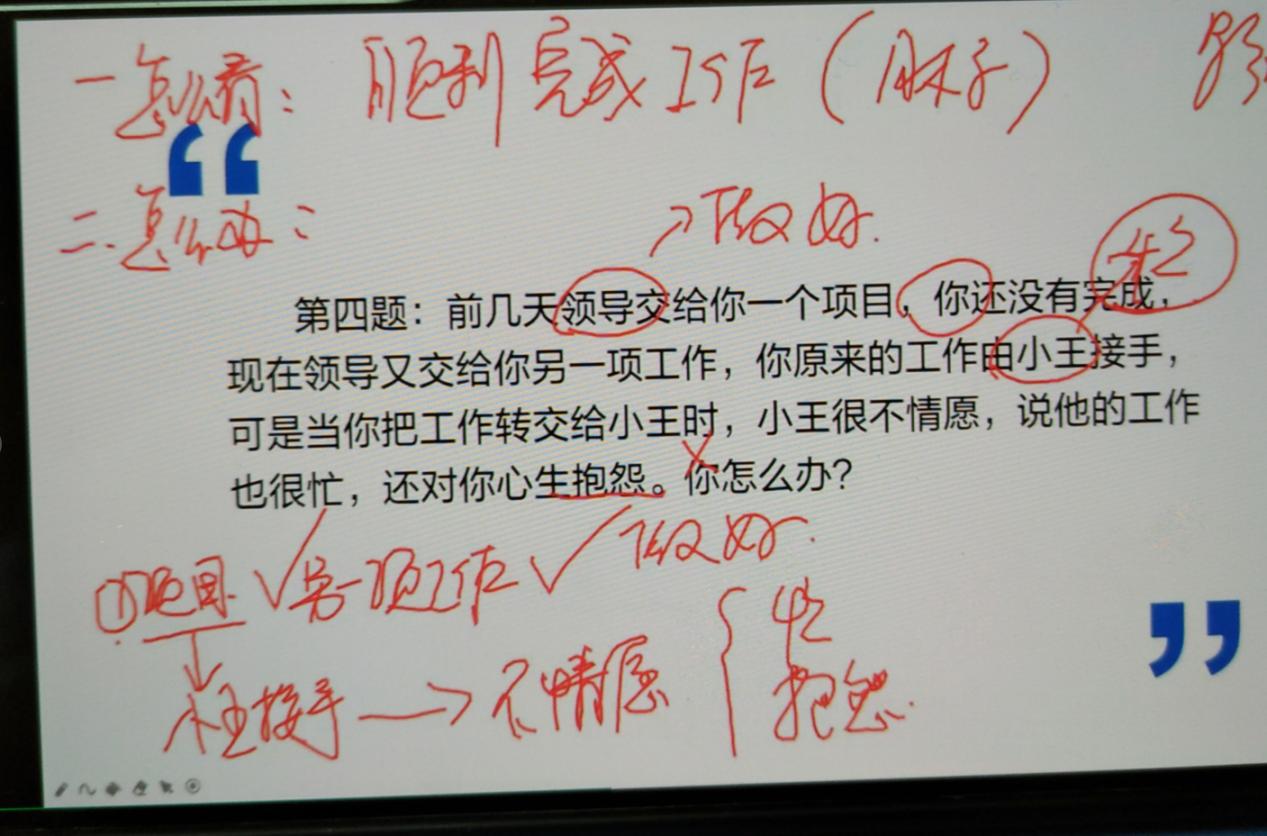 一怎么看：顺利完成工作（月木子）
“
二.怎么办：
→做好.
第四题：前几天领导交给你一个项目，你还没有完成，
现在领导又交给你另一项工作，你原来的工作由小王接手，
可是当你把工作转交给小王时，小王很不情愿，说他的工作
也很忙，还对你心生抱怨。你怎么办？
①项目 √ 另一项工作 √ 做好.
↓
小王接手 → 不情愿 { 忙
抱怨.
”